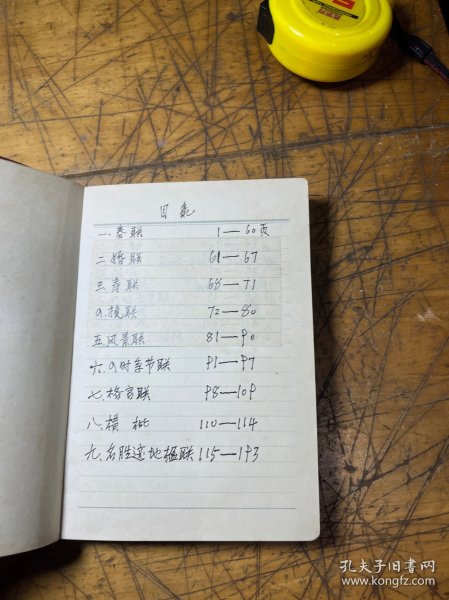 目录
一.春联 1—60页
二.婚联 61—67
三.寿联 68—71
四.挽联 72—80
五.风景联 81—90
六.四时季节联 91—97
七.格言联 98—109
八.横批 110—114
九.名胜 地楹联 115—193
孔夫子旧书网
www.kongfz.com